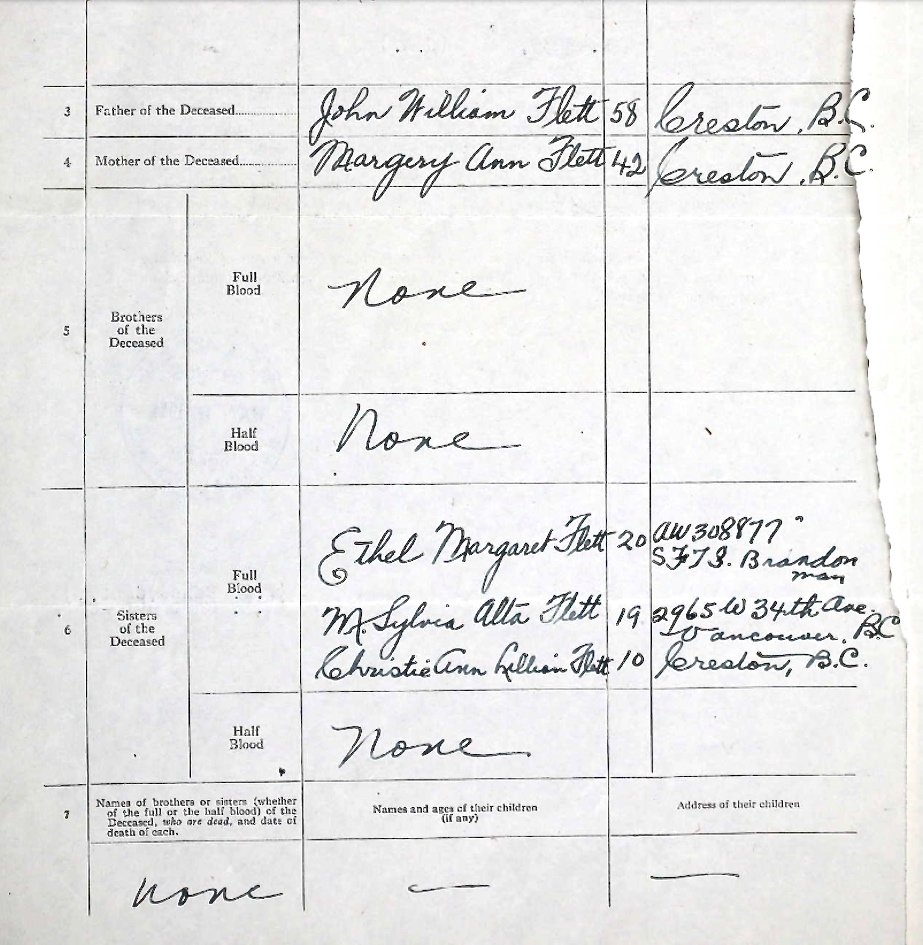 3 Father of the Deceased............... John William Flett 58 Creston, B.C.
4 Mother of the Deceased............... Margery Ann Flett 42 Creston, B.C.
5 Brothers of the Deceased
Full Blood None
Half Blood None
6 Sisters of the Deceased
Full Blood
Ethel Margaret Flett 20 AW308877
S.F.T.S. Brandon
Man
M. Sylvia Alta Flett 19 2965 W 34th Ave.
Vancouver, BC
Christie Ann Lillian Flett 10 Creston, B.C.
Half Blood None
7 Names of brothers or sisters (whether
of the full or the half blood) of the
Deceased, who are dead, and date of
death of each.
Names and ages of their children
(if any)
Address of their children
none — —